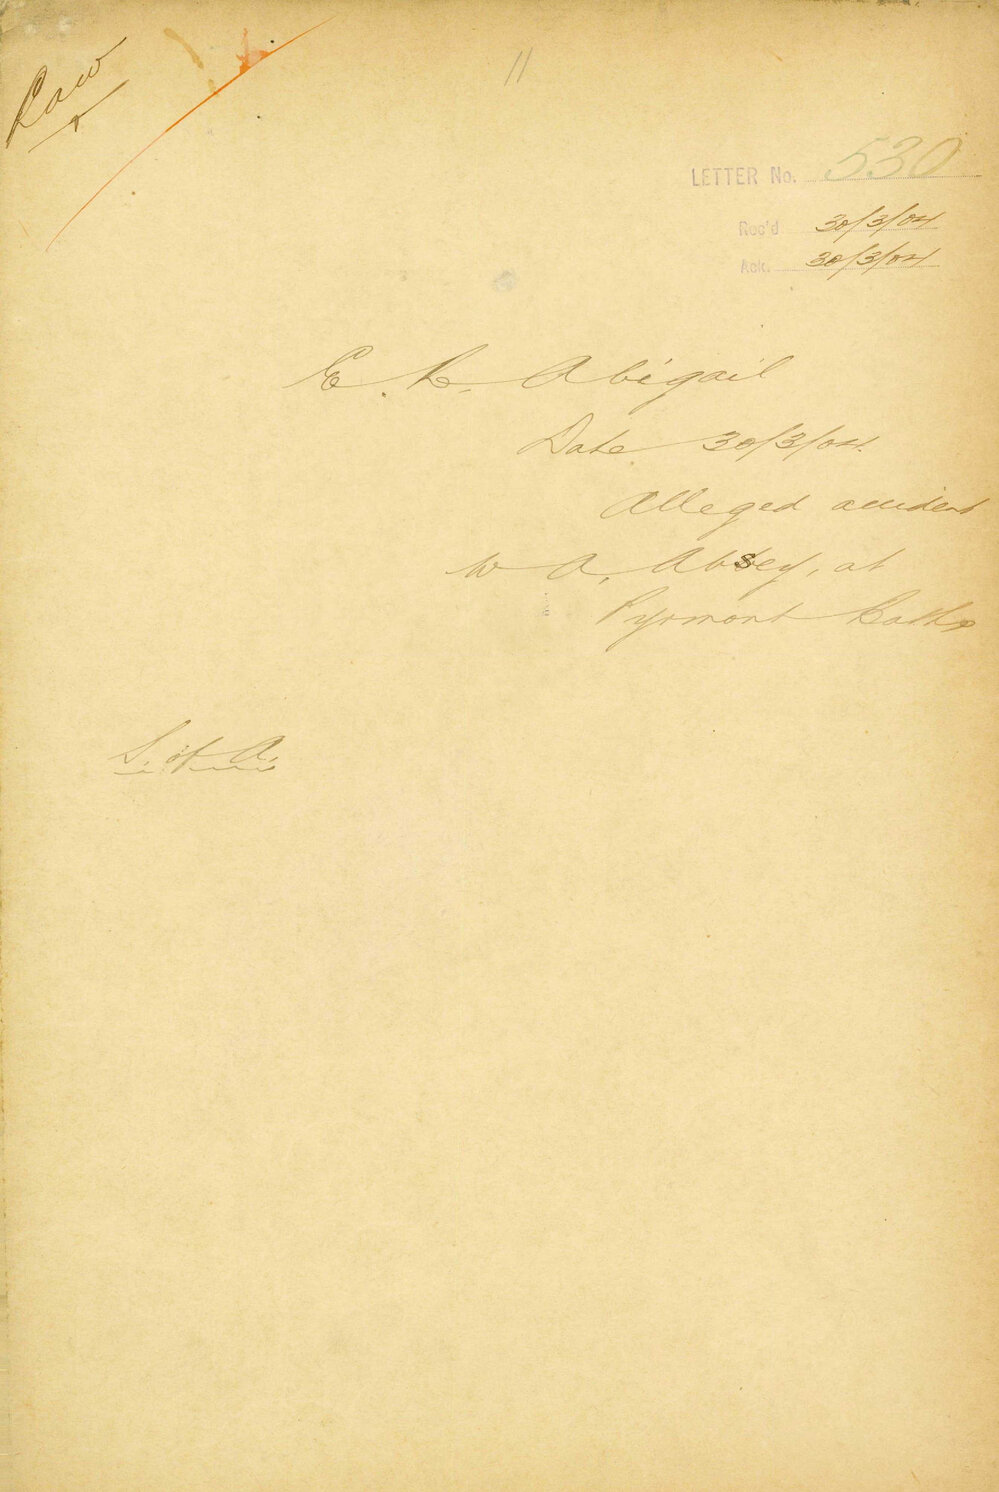 Law
11
LETTER No. 530
Rec'd 30/3/04
Ack. 30/3/04
E. R. Abigail
Date 30/3/04.
Alleged accident
W A, Absey, at
Pyrmont Baths